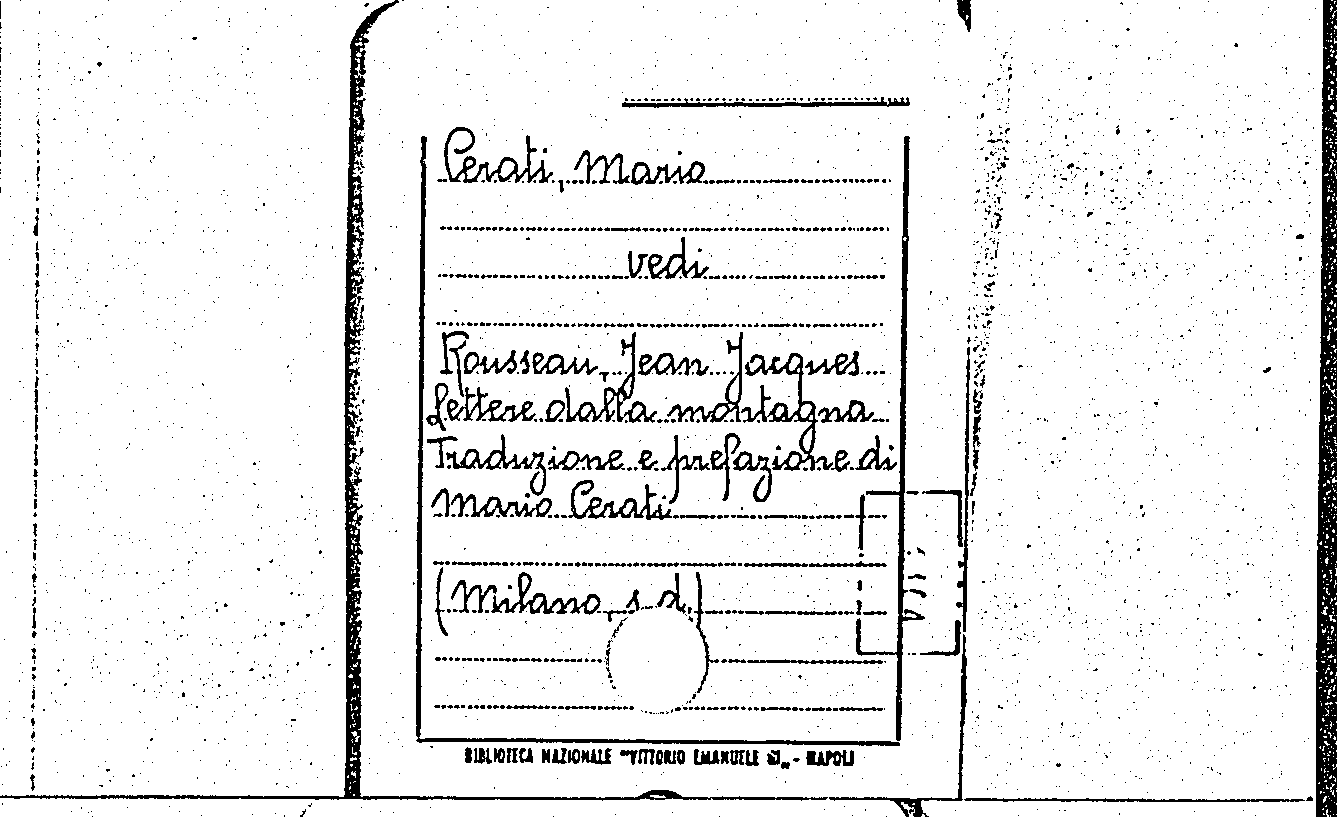 Cerati, Mario
vedi
Rousseau, Jean Jacques
Lettere dalla montagna
Traduzione e prefazione di
Mario Cerati
(Milano, s. d.)
BIBLIOTECA NAZIONALE "VITTORIO EMANUELE III" - NAPOLI